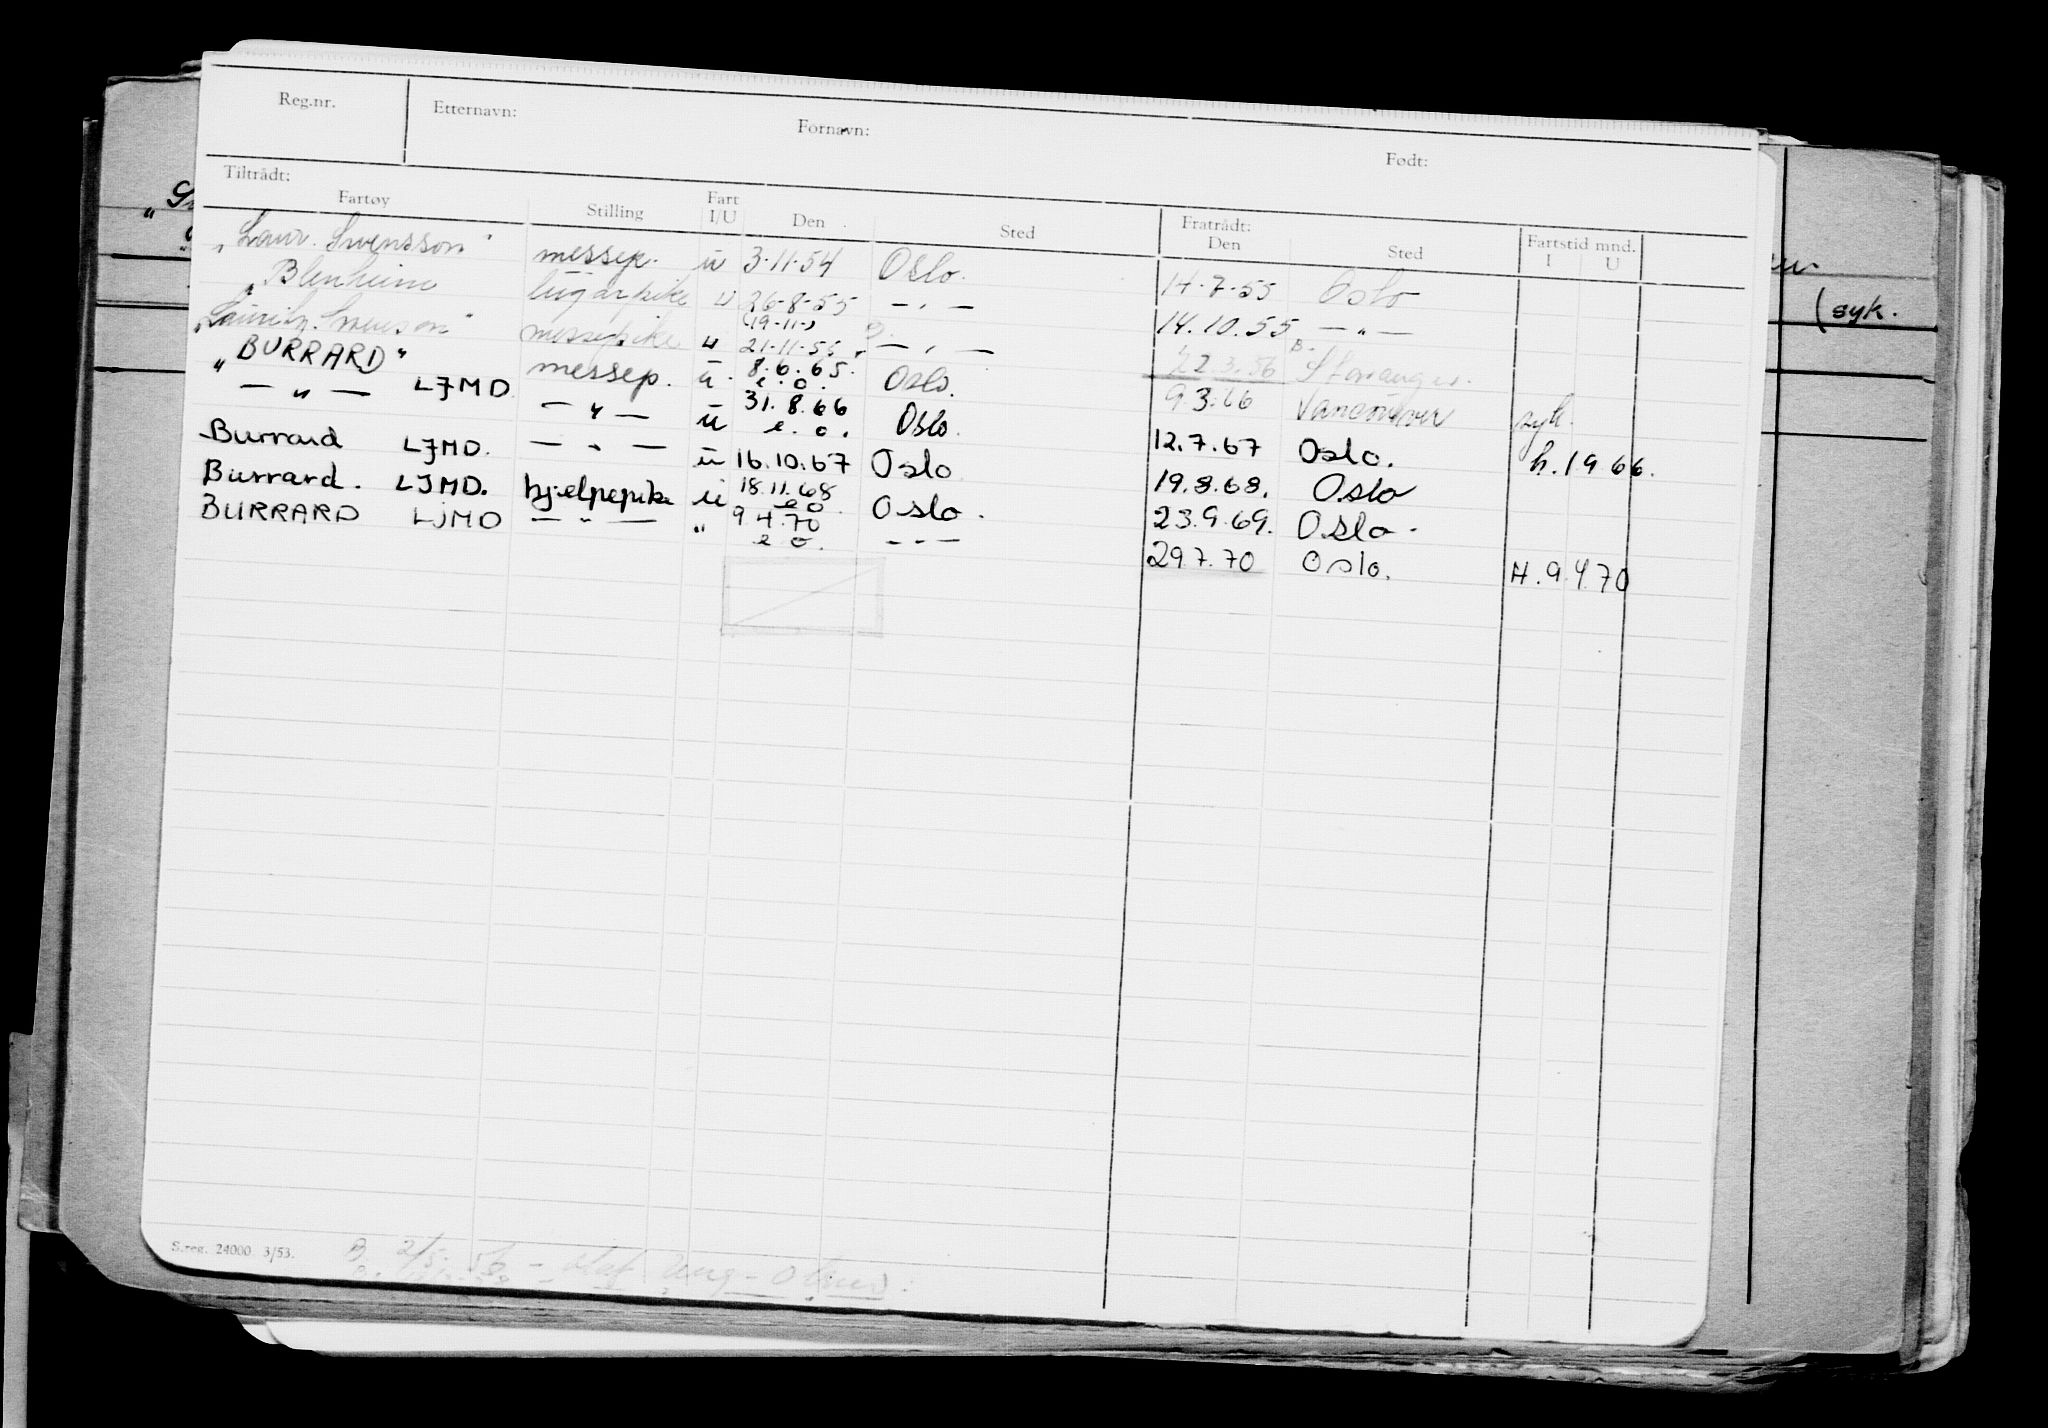 Reg.nr. Etternavn: Fornavn: Født:
Tiltrådt: Fratrådt:
Fartøy Stilling Fart I/U Den Sted Den Sted Fartstid mnd. I U
"Laur. Swensson" messep. u 3.11.54 Oslo. 14.7.55 Oslo
"Blenheim lugarpike u 26-8-55 — " — 14.10.55 — " —
(19-11-)
"Lauritz Swenson" messepike u 21-11-55 — " — 22.3.56 Stavanger.
"BURRARD" messep. u. 8.6.65. e.o. Oslo. 9.3.66 Vancouver syk.
— " — LJMD — " — u 31.8.66 e.o. Oslo. 12.7.67 Oslo. h.1966.
Burrard LJMD. — " — u 16.10.67 Oslo 19.8.68. Oslo
Burrard. LJMD. hjelpepike u 18.11.68 e o. Oslo. 23.9.69. Oslo.
BURRARD LJMD — " — " 9 4.70 e o. — " — 29.7.70 Oslo. H.9.4.70
(syk.
S.reg. 24000 3/53.
B. 2/5-56 - Olaf